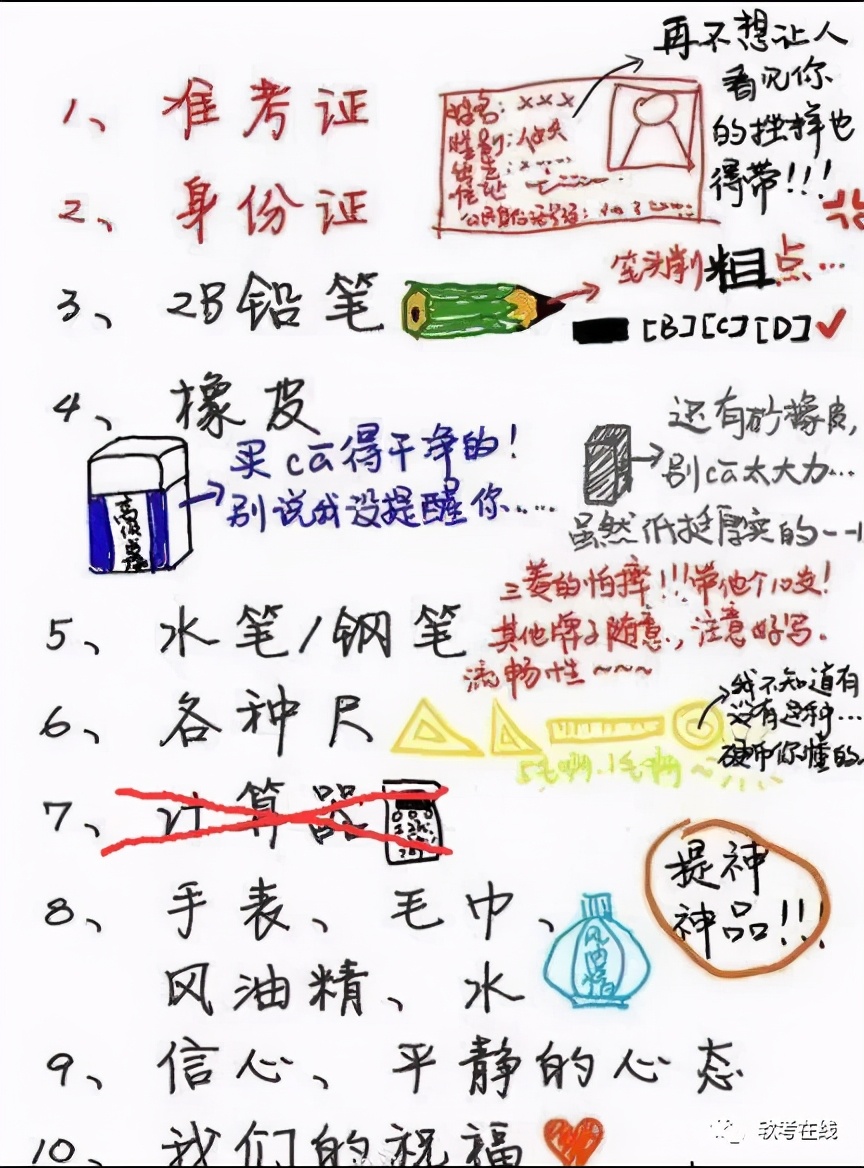 1、准考证
2、身份证
姓名：×××
再不想让人
看见你
的挫样也
得带!!!
3、2B铅笔
笔头削粗点…
[B][C][D]✓
4、橡皮
买cā得干净的!
别说我没提醒你……
还有砂橡皮,
别cā太大力…
虽然低挺厚实的--!
5、水笔/钢笔
三菱的怕摔!!!带他个10支!
其他牌子随意,注意好写.
流畅性~~~
6、各种尺
我不知道有
没有这种…
硬币你懂的.
7、计算器
8、手表、毛巾、
风油精、水
风油精
提神
神品!!!
9、信心、平静的心态
10、我们的祝福
软考在线